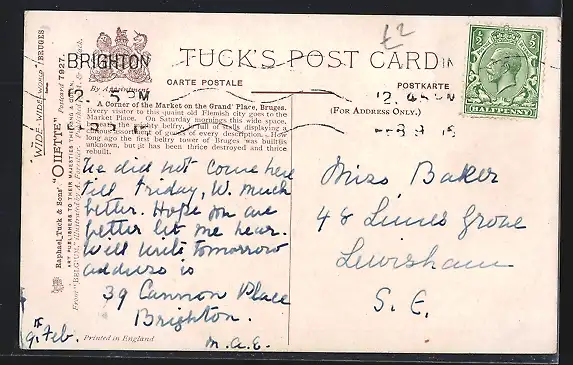 £2
BRIGHTON
TUCK'S POST CARD
CARTE POSTALE
POSTKARTE
By Appointment
(FOR ADDRESS ONLY.)
HALFPENNY
"WIDE-WIDE-WORLD"/BRUGES
Raphael Tuck & Sons' "OILETTE" Postcard 7927.
ART PUBLISHERS TO THEIR MAJESTIES THE KING &
From "BELGIUM," Illustrated by A. Forestier
A Corner of the Market on the Grand' Place, Bruges.
Every visitor to this quaint old Flemish city goes to the
Market Place. On Saturday mornings this wide space,
beneath the mighty belfry, is full of stalls displaying a
curious assortment of goods of every description. How
long ago the first belfry tower of Bruges was built is
unknown, but it has been thrice destroyed and thrice
rebuilt.
We did not come here
till Friday, W. much
better. Hope you are
better let me hear.
Will write tomorrow
address is
39 Cannon Place
Brighton.
M.A.E.
9 Feb.
Printed in England
Miss Baker
48 Limes Grove
Lewisham
S. E.